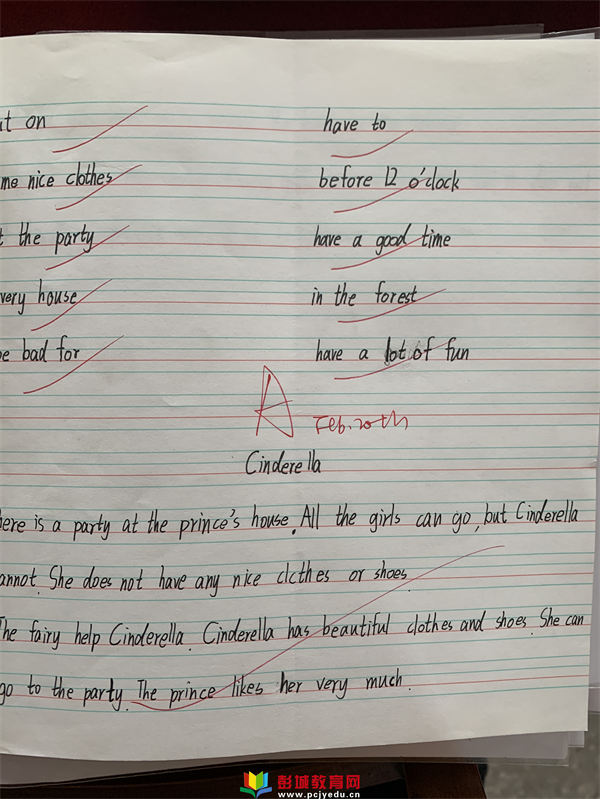 on have to
nice clothes before 12 o'clock
the party have a good time
very house in the forest
bad for have a lot of fun
A Feb. 20th
Cinderella
here is a party at the prince's house. All the girls can go, but Cinderella
annot. She does not have any nice clothes or shoes.
The fairy help Cinderella. Cinderella has beautiful clothes and shoes. She can
go to the party. The prince likes her very much.
彭城教育网
www.pcjyedu.cn